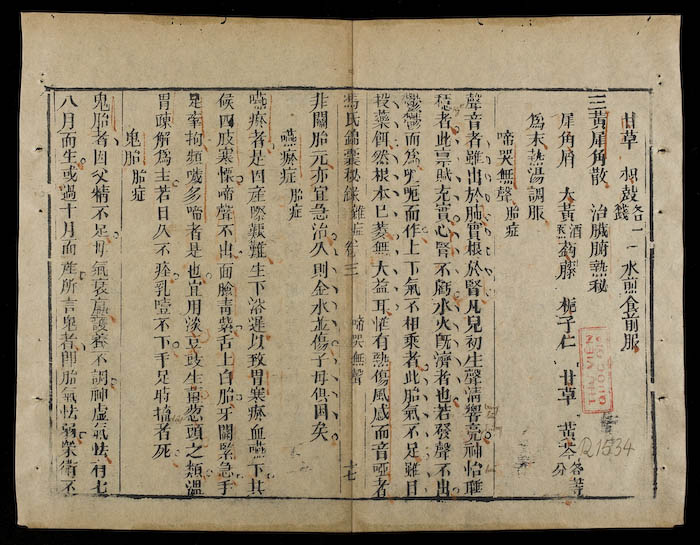 甘草 枳殼各一錢 水煎食前服
三黃犀角散 治臟腑熱秘
犀角屑 大黃酒蒸 鈎藤 梔子仁 甘草 黃芩各等分
為末熱湯調服
啼哭無聲 胎症
聲音者雖出於肺實根於腎凡兒初生聲清響亮神怡睡
穩者此稟賦充實心腎不虧水火既濟者也若發聲不出
鬱鬱而為 呃而作上下氣不相乘者此胎氣不足雖日
投藥餌然根本已萎無大益耳惟有熱傷風感而音啞者
馮氏錦囊秘錄 雜症 卷三 啼哭無聲 十七
非關胎元亦宜急治久則金水並傷子母俱困矣
嚥瘀症 胎症
嚥瘀者是因產際艱難生下浴遲以致胃寒瘀血嚥下其
候四肢寒慄啼聲不出面臉青紫舌上白胎牙關緊急手
足牽拘頻 多啼者是也宜用淡豆豉生薑葱頭之類溫
胃疎解為主若日久不痊乳噎不下手足時搐者死
鬼胎 胎症
鬼胎者因父精不足母氣衰羸護養不調神虛氣怯有七
八月而生或過十月而產所言鬼者即胎氣怯弱榮衛不
THƯ VIỆN
QUỐC GIA
R1534